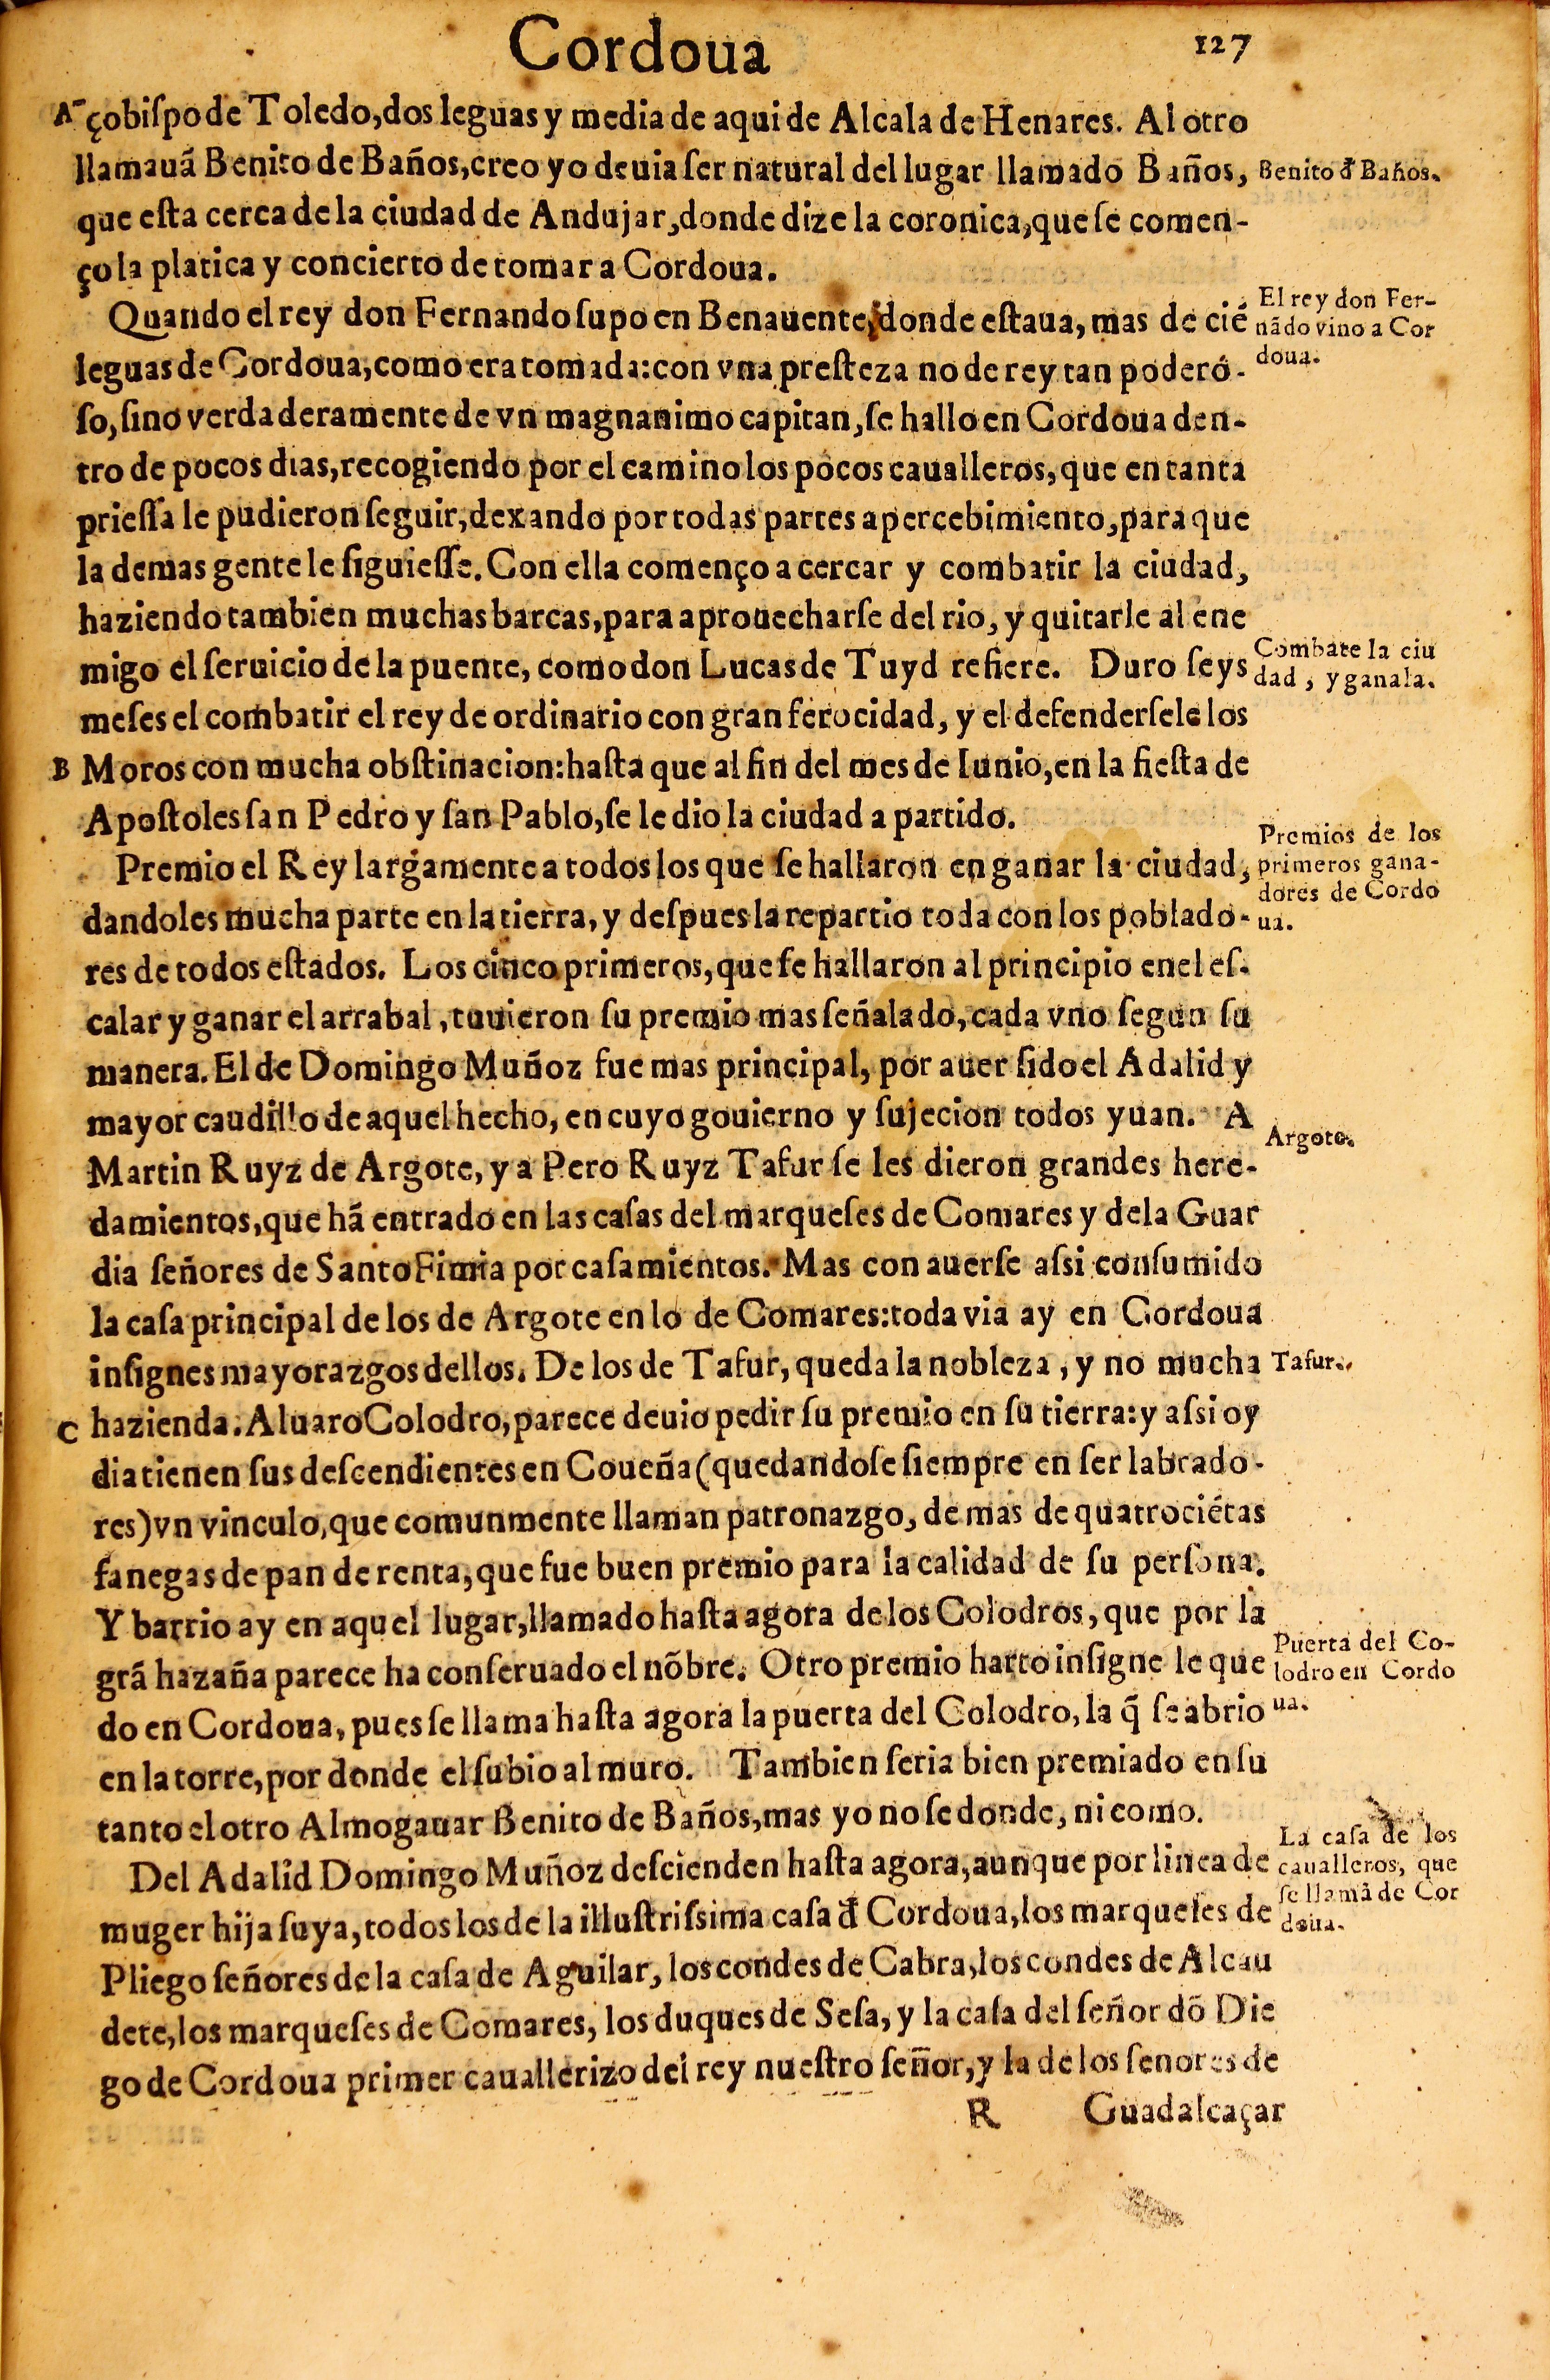 Cordoua
127
A çobiſpo de Toledo, dos leguas y media de aqui de Alcala de Henares. Al otro
llamauã Benito de Baños, creo yo deuia ſer natural del lugar llamado Baños,
Benito đ Baños.
que eſta cerca de la ciudad de Andujar, donde dize la coronica, que ſe comen-
ço la platica y concierto de tomar a Cordoua.
Quando el rey don Fernando ſupo en Benauente, donde eſtaua, mas de cié
El rey don Fer-
nãdo vino a Cor
doua.
leguas de Cordoua, como era tomada: con vna preſteza no de rey tan podero-
ſo, ſino verdaderamente de vn magnanimo capitan, ſe hallo en Cordoua den-
tro de pocos dias, recogiendo por el camino los pocos caualleros, que en tanta
prieſſa le pudieron ſeguir, dexando por todas partes apercebimiento, para que
la demas gente le ſiguieſſe. Con ella començo a cercar y combatir la ciudad,
haziendo tambien muchas barcas, para aprouecharſe del rio, y quitarle al ene
migo el ſeruicio de la puente, como don Lucas de Tuyd refiere. Duro ſeys
Combate la ciu
dad, y ganala.
meſes el combatir el rey de ordinario con gran ferocidad, y el defenderſele los
B Moros con mucha obſtinacion: haſta que al fin del mes de Iunio, en la fieſta de
Apoſtoles ſan Pedro y ſan Pablo, ſe le dio la ciudad a partido.
Premio el Rey largamente a todos los que ſe hallaron en ganar la ciudad,
Premios de los
primeros gana-
dores de Cordo
ua.
dandoles mucha parte en la tierra, y deſpues la repartio toda con los poblado-
res de todos eſtados. Los cinco primeros, que ſe hallaron al principio en el eſ-
calar y ganar el arrabal, tuuieron ſu premio mas ſeñalado, cada vno ſegun ſu
manera. El de Domingo Muñoz fue mas principal, por auer ſido el Adalid y
mayor caudillo de aquel hecho, en cuyo gouierno y ſujecion todos yuan. A
Argote.
Martin Ruyz de Argote, y a Pero Ruyz Tafur ſe les dieron grandes here-
damientos, que hã entrado en las caſas del marqueſes de Comares y dela Guar
dia ſeñores de Santo Fimia por caſamientos. Mas con auerſe aſsi conſumido
la caſa principal de los de Argote en lo de Comares: toda via ay en Cordoua
inſignes mayorazgos dellos. De los de Tafur, queda la nobleza, y no mucha
Tafur.
C hazienda. Aluaro Colodro, parece deuio pedir ſu premio en ſu tierra: y aſsi oy
dia tienen ſus deſcendientes en Coueña (quedandoſe ſiempre en ſer labrado-
res) vn vinculo, que comunmente llaman patronazgo, de mas de quatrociétas
fanegas de pan de renta, que fue buen premio para la calidad de ſu perſona.
Y barrio ay en aquel lugar, llamado haſta agora de los Colodros, que por la
grã hazaña parece ha conſeruado el nõbre. Otro premio harto inſigne le que
Puerta del Co-
lodro en Cordo
ua.
do en Cordoua, pues ſe llama haſta agora la puerta del Colodro, la q̃ ſe abrio
en la torre, por donde el ſubio al muro. Tambien ſeria bien premiado en ſu
tanto el otro Almogauar Benito de Baños, mas yo no ſe donde, ni como.
Del Adalid Domingo Muñoz deſcienden haſta agora, aunque por linea de
La caſa de los
caualleros, que
ſe llamã de Cor
doua.
muger hija ſuya, todos los de la illuſtriſsima caſa đ Cordoua, los marqueſes de
Pliego ſeñores de la caſa de Aguilar, los condes de Cabra, los condes de Alcau
dete, los marqueſes de Comares, los duques de Seſa, y la caſa del ſeñor dõ Die
go de Cordoua primer cauallerizo del rey nueſtro ſeñor, y la de los ſenores de
R Guadalcaçar